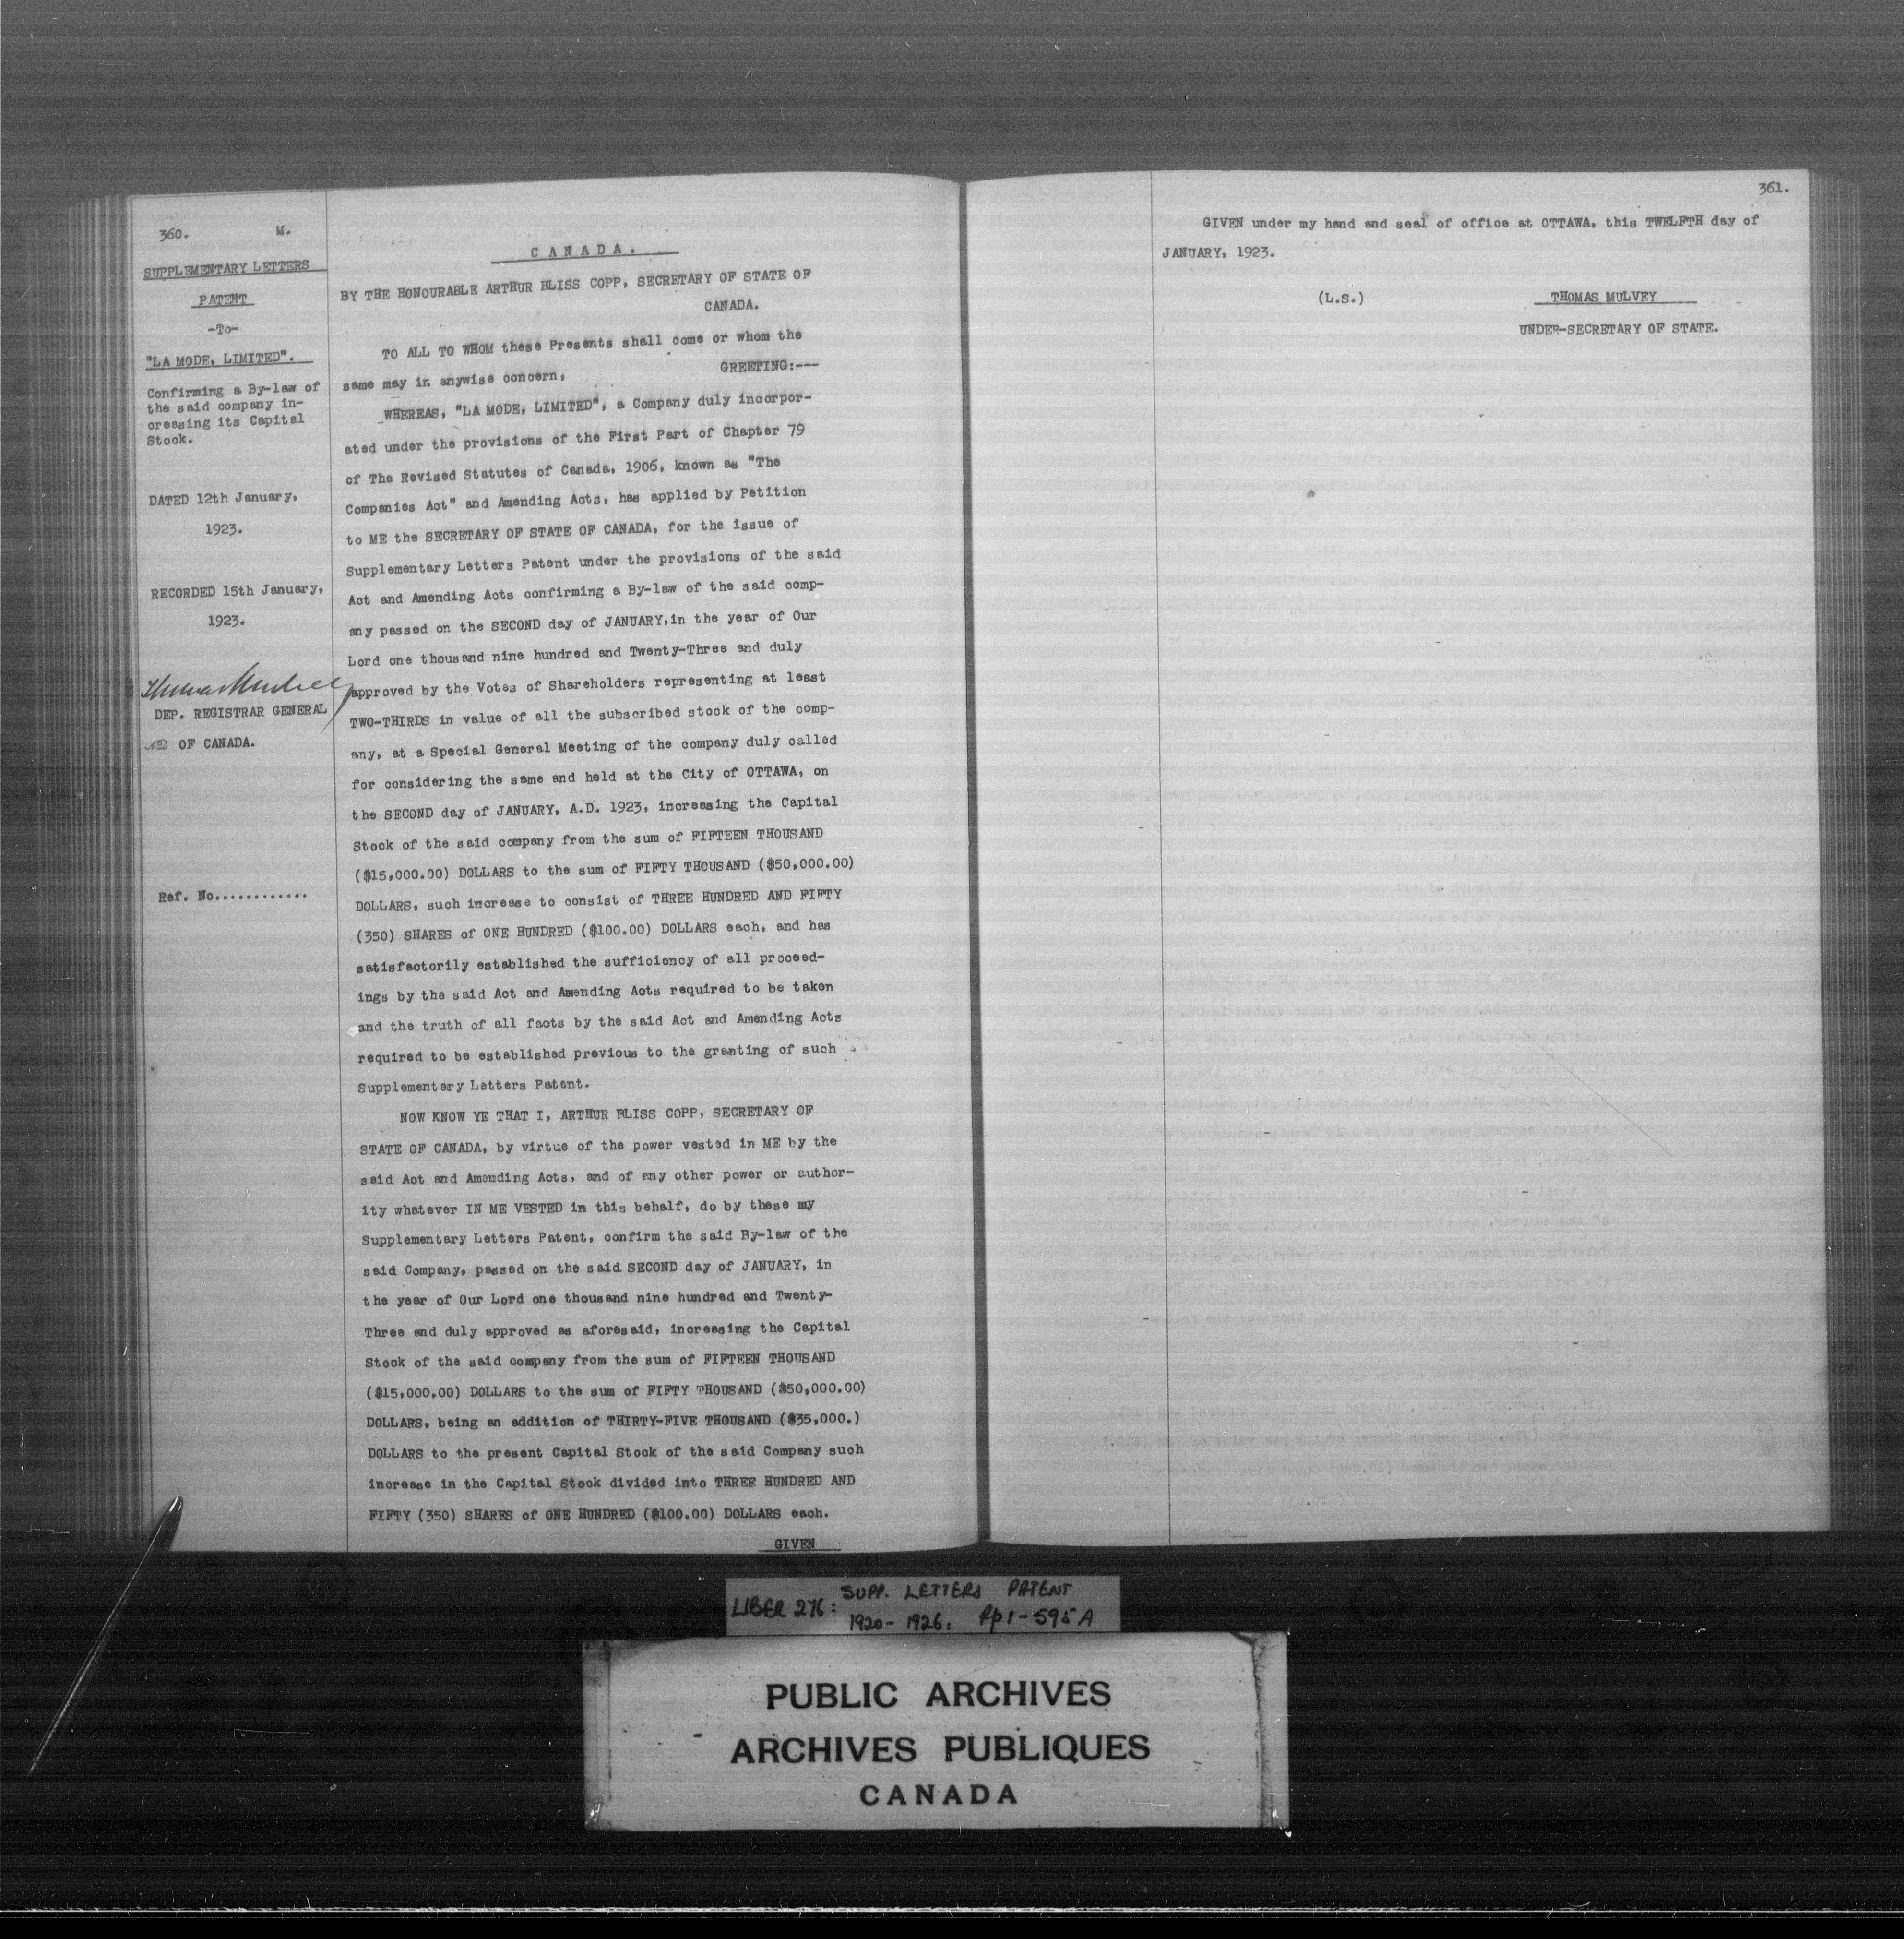 360. M.
SUPPLEMENTARY LETTERS
PATENT
-To-
"LA MODE, LIMITED".
Confirming a By-law of
the said company in-
creasing its Capital
Stock.
DATED 12th January,
1923.
RECORDED 15th January,
1923.
Thomas Mulvey
DEP. REGISTRAR GENERAL
OF CANADA.
Ref. No............
CANADA.
BY THE HONOURABLE ARTHUR BLISS COPP, SECRETARY OF STATE OF
CANADA.
TO ALL TO WHOM these Presents shall come or whom the
same may in anywise concern, GREETING:---
WHEREAS, "LA MODE, LIMITED", a Company duly incorpor-
ated under the provisions of the First Part of Chapter 79
of The Revised Statutes of Canada, 1906, known as "The
Companies Act" and Amending Acts, has applied by Petition
to ME the SECRETARY OF STATE OF CANADA, for the issue of
Supplementary Letters Patent under the provisions of the said
Act and Amending Acts confirming a By-law of the said comp-
any passed on the SECOND day of JANUARY,in the year of Our
Lord one thousand nine hundred and Twenty-Three and duly
approved by the Votes of Shareholders representing at least
TWO-THIRDS in value of all the subscribed stock of the comp-
any, at a Special General Meeting of the company duly called
for considering the same and held at the City of OTTAWA, on
the SECOND day of JANUARY, A.D. 1923, increasing the Capital
Stock of the said company from the sum of FIFTEEN THOUSAND
($15,000.00) DOLLARS to the sum of FIFTY THOUSAND ($50,000.00)
DOLLARS, such increase to consist of THREE HUNDRED AND FIFTY
(350) SHARES of ONE HUNDRED ($100.00) DOLLARS each, and has
satisfactorily established the sufficiency of all proceed-
ings by the said Act and Amending Acts required to be taken
and the truth of all facts by the said Act and Amending Acts
required to be established previous to the granting of such
Supplementary Letters Patent.
NOW KNOW YE THAT I, ARTHUR BLISS COPP, SECRETARY OF
STATE OF CANADA, by virtue of the power vested in ME by the
said Act and Amending Acts, and of any other power or author-
ity whatever IN ME VESTED in this behalf, do by these my
Supplementary Letters Patent, confirm the said By-law of the
said Company, passed on the said SECOND day of JANUARY, in
the year of Our Lord one thousand nine hundred and Twenty-
Three and duly approved as aforesaid, increasing the Capital
Stock of the said company from the sum of FIFTEEN THOUSAND
($15,000.00) DOLLARS to the sum of FIFTY THOUSAND ($50,000.00)
DOLLARS, being an addition of THIRTY-FIVE THOUSAND ($35,000.)
DOLLARS to the present Capital Stock of the said Company such
increase in the Capital Stock divided into THREE HUNDRED AND
FIFTY (350) SHARES of ONE HUNDRED ($100.00) DOLLARS each.
GIVEN
361.
GIVEN under my hand and seal of office at OTTAWA, this TWELFTH day of
JANUARY, 1923.
(L.S.) THOMAS MULVEY
UNDER-SECRETARY OF STATE.
LIBER 276: SUPP. LETTERS PATENT
1920-1926: pp 1-595A
PUBLIC ARCHIVES
ARCHIVES PUBLIQUES
CANADA